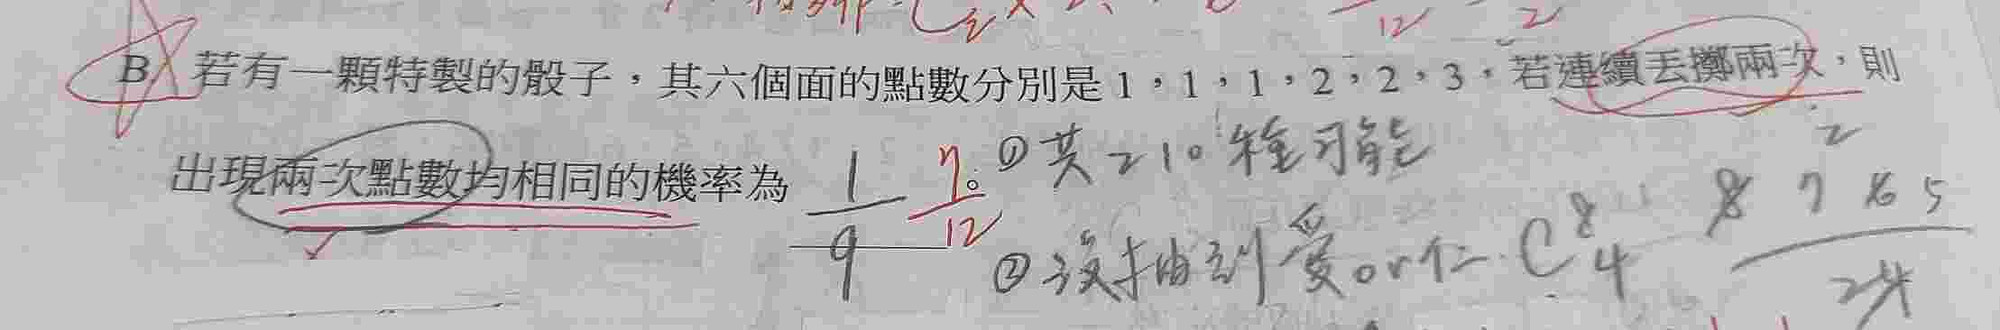 B 若有一顆特製的骰子，其六個面的點數分別是 1，1，1，2，2，3，若連續丟擲兩次，則
出現兩次點數均相同的機率為 1/9 7/12 。
①共210種可能
②沒抽到愛or仁 C⁸₄ 8 7 6 5 / 24 2